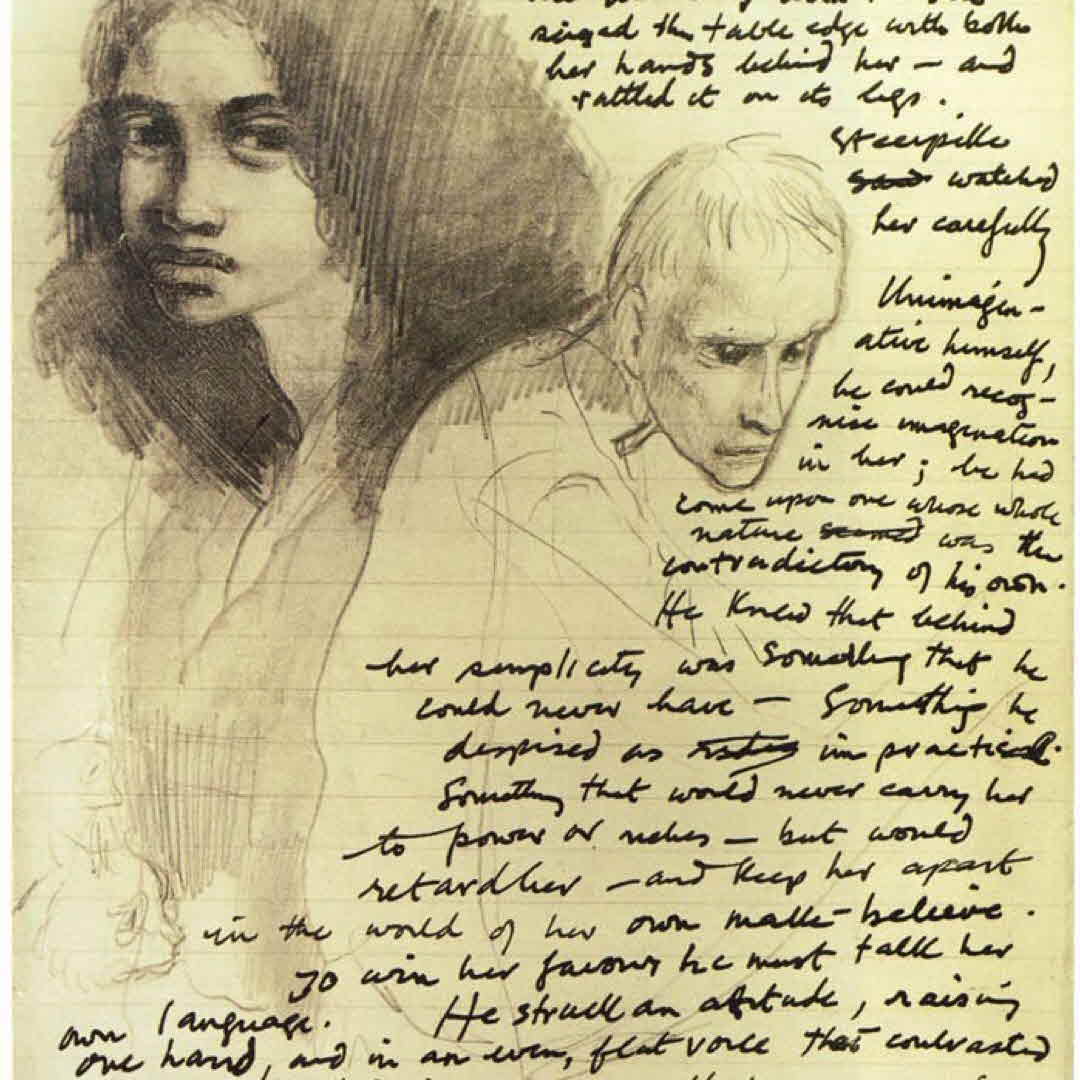 seized the table edge with both
her hands behind her – and
rattled it on its legs.
Steerpike
said watched
her carefully
Unimagin-
ative himself,
he could recog-
nise imagination
in her; he had
come upon one whose whole
nature seemed was the
contradictory of his own.
He knew that behind
her simplicity was something that he
could never have – Something he
despised as impractical.
Something that would never carry her
to power or riches – but would
retard her – and keep her apart
in the world of her own make-believe.
To win her favour he must talk her
own language. He struck an attitude, raising
one hand, and in an even, flat voice that contrasted